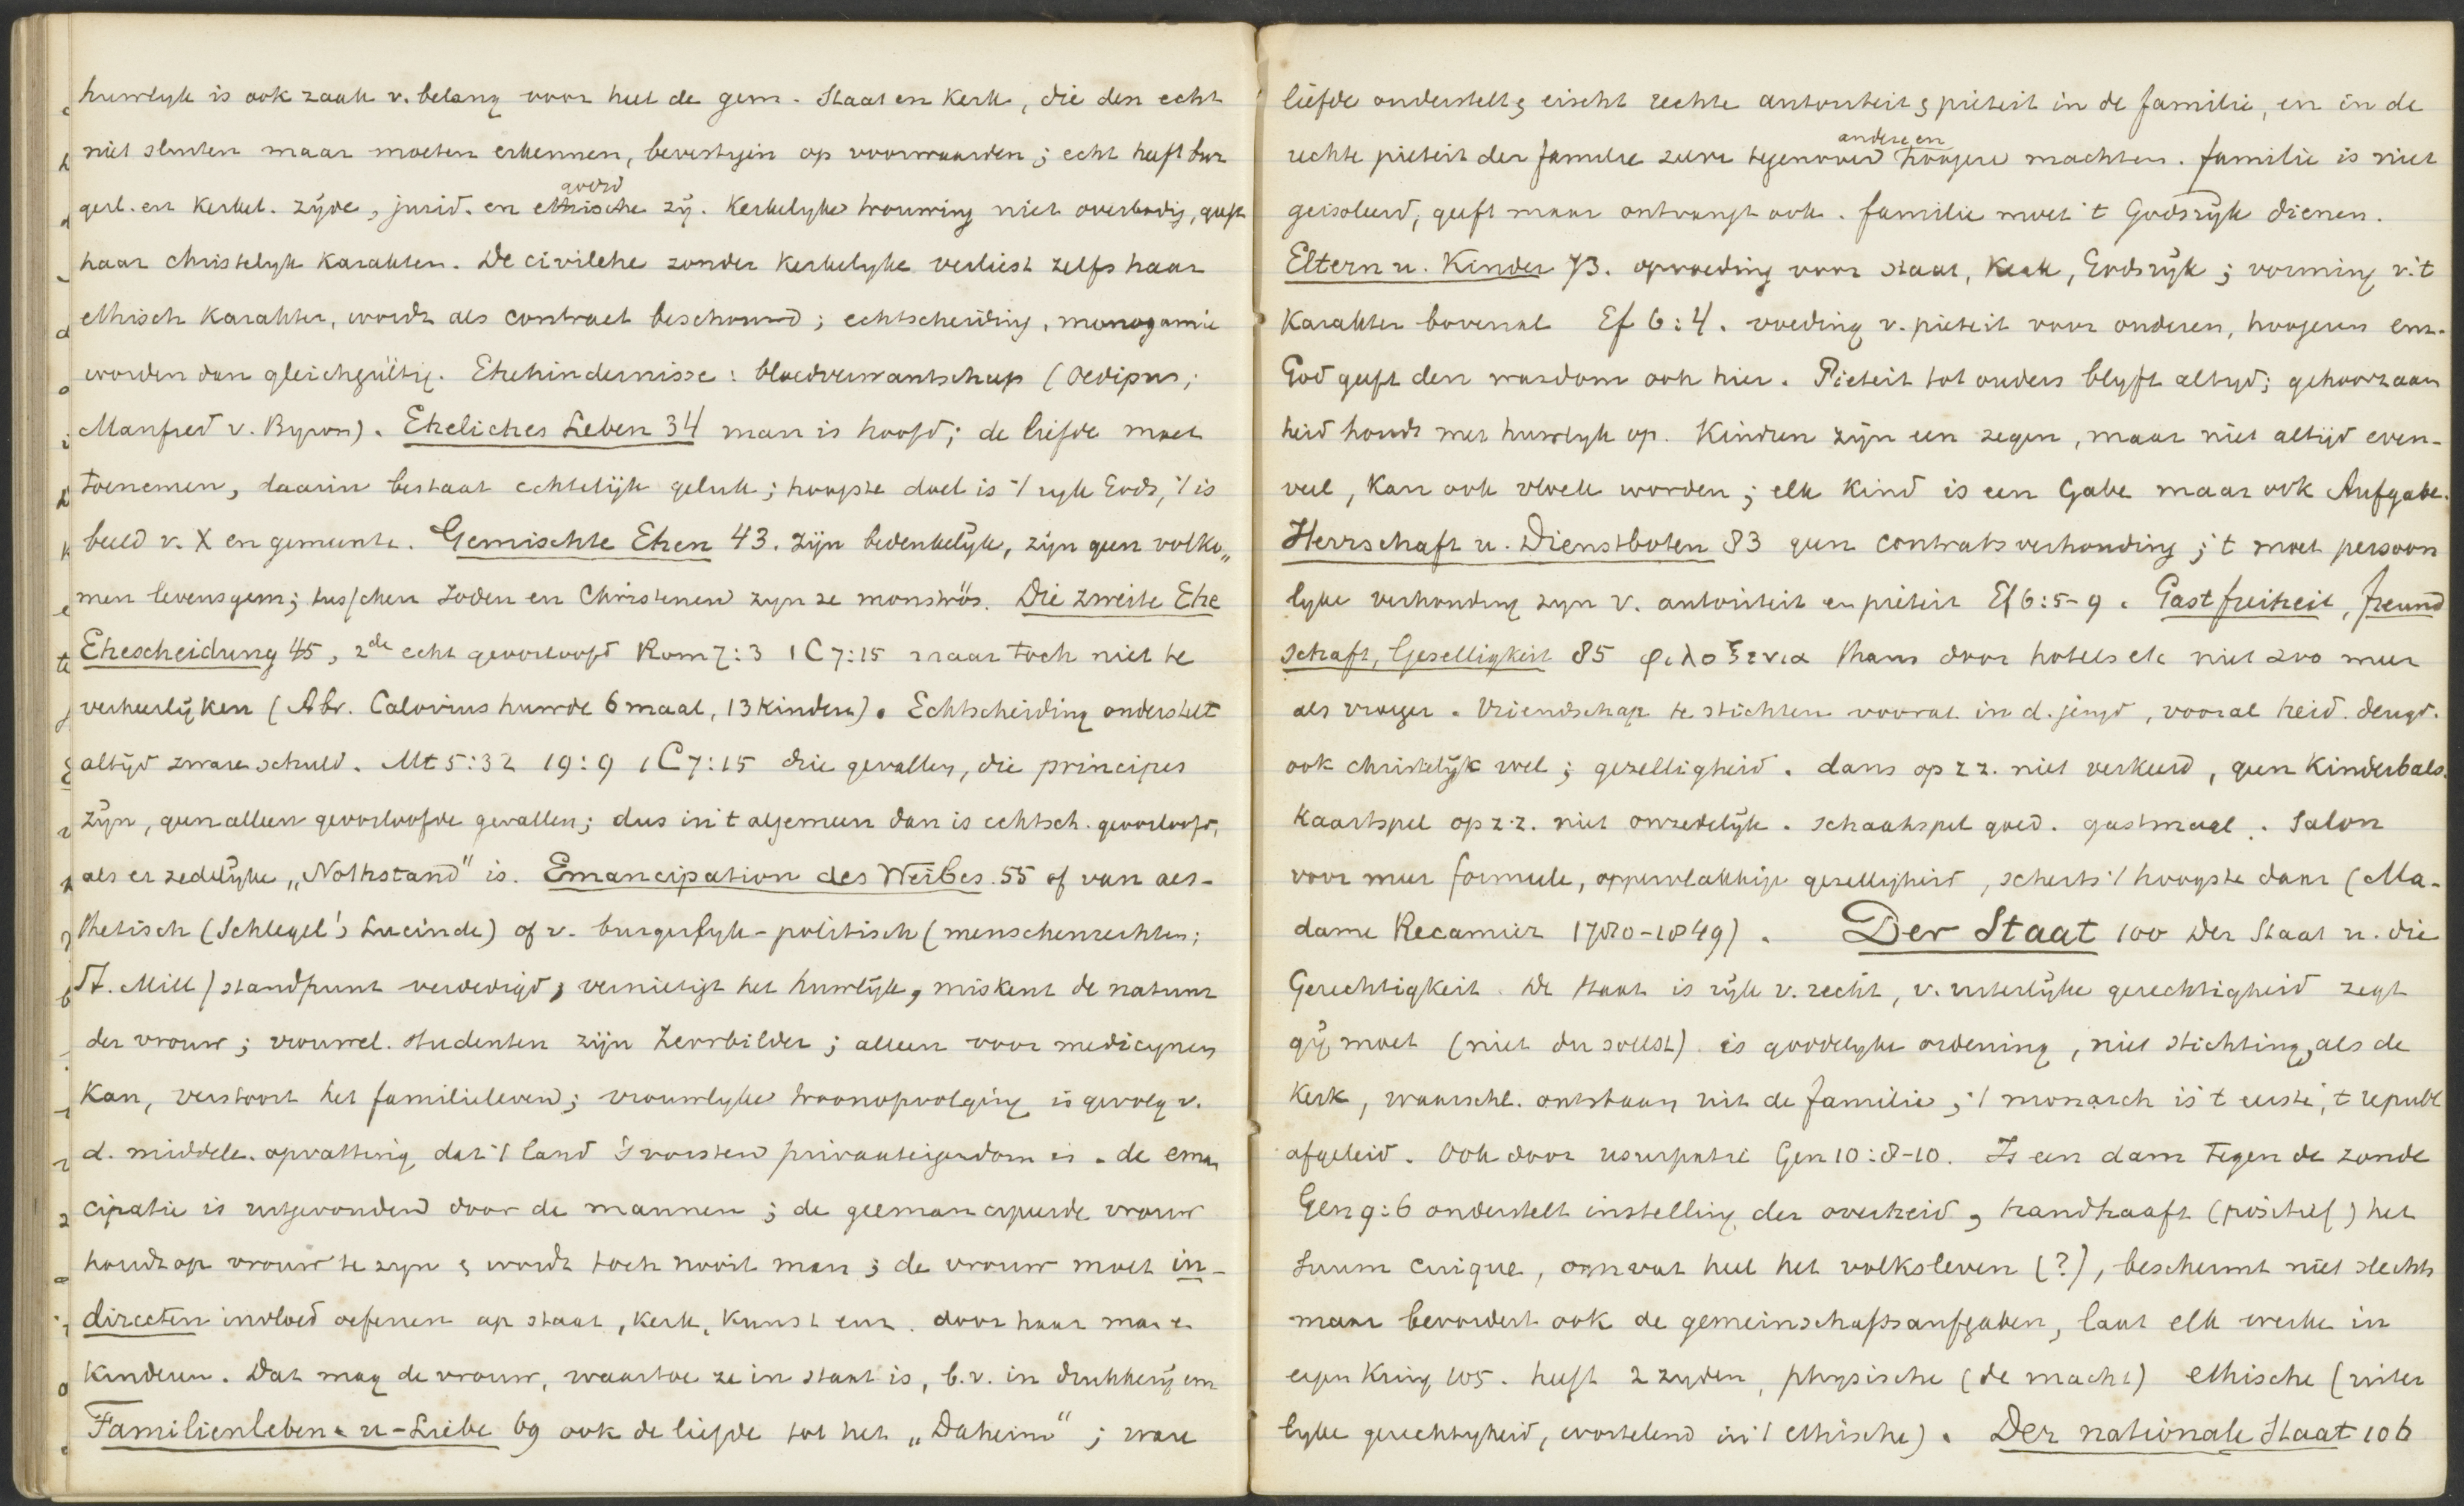 huwlyk is ook zaak v. belang voor heel de gem. Staat en Kerk, die den echt
niet sluiten maar moeten erkennen, bevestigen op voorwaarden; echt heeft bur
gerl. en kerkel. zijde, jurid. en ethische zij. Kerkelyke trouwing niet overbodig, geeft
haar christelyk karakter. De civilehe zonder kerkelyke verliest zelfs haar
ethisch karakter, wordt als contract beschouwd; echtscheiding, monogamie
worden dan gleichgültig. Ehehindernisse: bloedverwantschap (Oedipus;
Manfred v. Byron). Eheliches Leben 34 man is hoofd; de liefde moet
toenemen, daarin bestaat echtelijk geluk; hoogste doel is 't ryk Gods, 't is
beeld v. X en gemeente. Gemischte Ehen 43. zijn bedenkelijk, zijn geen volko„
men levensgem; tusschen Joden en Christenen zyn ze monströs. Die zweite Ehe
Ehescheidung 45, 2de echt geoorloofd Rom 7:3 1 C 7:15 maar toch niet te
verheerlijken (Abr. Calovius huwde 6 maal, 13 kinderen). Echtscheiding onderstelt
altijd zware schuld. Mt 5:32 19:9 1 C 7:15 drie gevallen, die principes
zijn, geen alleen geoorloofde gevallen; dus in 't algemeen dan is echtsch. geoorloofd,
als er zedelijke „Nothstand" is. Emancipation des Weibes. 55 of van aes-
thetisch (Schlegel's Lucinde) of v. burgerlyk-politisch (menschenrechten;
St. Mill) standpunt verdedigd, vernietigt het huwlijk, miskent de natuur
der vrouw; vrouwel. studenten zijn Zerrbilder; alleen voor medicynen
kan, verstoort het familieleven; vrouwlyke troonopvolging is gevolg v.
d. middele. opvatting dat 't land 's vorsten privaateigendom is. de eman
cipatie is uitgevonden door de mannen; de geëmancipeerde vrouw
houdt op vrouw te zyn & wordt toch nooit man; de vrouw moet in-
directen invloed oefenen op staat, kerk, kunst enz. door haar man en
kinderen. Dat mag de vrouw, waartoe ze in staat is, b.v. in drukkerij enz
Familienleben u-Liebe 69 ook de liefde tot het „Daheim"; ware
liefde onderstelt & eischt rechte autoriteit & pieteit in de familie, en in de
andere en
rechte pieteit der familie zelve tegenover hoogere machten. familie is niet
geisoleerd, geeft maar ontvangt ook. familie moet 't Godsrijk dienen.
Eltern u. Kinder 73. opvoeding voor staat, Kerk, Godsrijk; vorming v. 't
karakter bovenal Ef 6:4. voeding v. pieteit voor anderen, hoogeren enz.
God geeft den wasdom ook hier. Pieteit tot ouders blyft altyd; gehoorzaam
heid houdt met huwlyk op. Kinderen zijn een zegen, maar niet altijd even-
veel, kan ook vloek worden; elk kind is een Gabe maar ook Aufgabe.
Herrschaft u. Dienstboten 83 geen contractsverhouding; 't moet persoon
lyke verhouding zyn v. autoriteit en pieteit Ef 6:5-9. Gastfreiheit, Freund
schaft, Geselligkeit 85 φιλοξενια thans door hotels etc niet zoo meer
als vroeger. Vriendschap te stichten vooral in d. jeugd, vooral heid. deugd.
ook christelijk wel; gezelligheid. dans op z z. niet verkeerd, geen kinderbals.
kaartspel op z.z. niet onzedelijk. schaakspel goed. gastmaal. Salon
voor meer formeele, oppervlakkige gezelligheid, scherts 't hoogste daar (Ma-
dame Recamier 1780-1849). Der Staat 100 Der Staat u. die
Gerechtigkeit. De staat is rijk v. recht, v. uiterlijke gerechtigheid zegt
gij moet (niet du sollst). is goddelyke ordening, niet stichting, als de
Kerk, waarschl. ontstaan uit de familie; 't monarch is 't eerste, 't republ
afgeleid. Ook door usurpatie Gen 10:8-10. Is een dam tegen de zonde
Gen 9:6 onderstelt instelling der overheid, handhaaft (positief) het
suum cuique, omvat heel het volksleven (?), beschermt niet slechts
maar bevordert ook de gemeinschaftsaufgaben, laat elk werken in
eigen kring 105. heeft 2 zyden, physische (de macht) ethische (uiter
lyke gerechtigheid, wortelend in 't ethische). Der nationale Staat 106